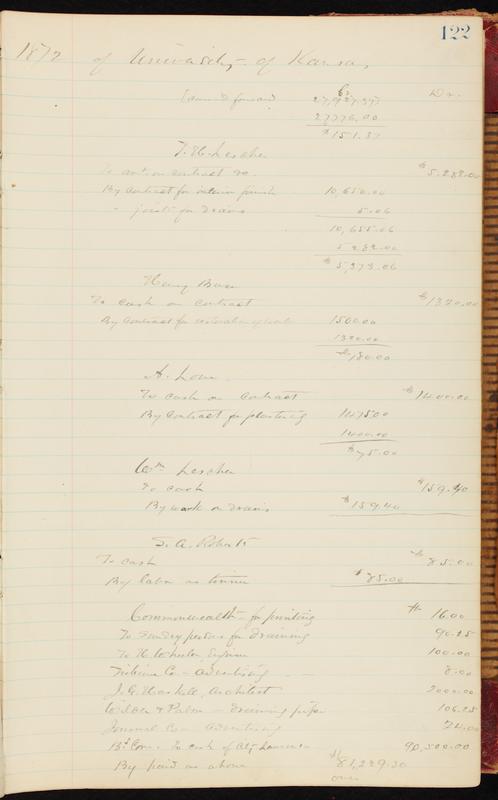 122
1872 of University of Kansas,
Cr. Dr.
forward 27,927.37
27776.00
$151.37
To on contract $5,288.00
By contract for interior finish 10,650.00
" for Drains 5.06
10,655.06
Henry
To cash on contract $1320.00
By Contract for 1500.00
1320.00
$180.00
A.
To cash on contract $1400.00
By Contract for plastering 1475.00
1400.00
$75.00
Wm Lescher
To cash $159.40
By work on Drains $159.40
S. A. Roberts
To cash $85.00
By labor as tinner $85.00
Commonwealth - for printing $ 16.00
To Sundry persons for Draining 90.25
To H. Wheeler, Engineer 100.00
Tribune Co - Advertising 8.00
J. G. Haskell, Architect 2000.00
Wilder & Palm - Draining pipe 106.25
Journal Co - Advertising
Bd. Com. To cash of City Lawrence 90,500.00
By paid as above $81,229.30
over